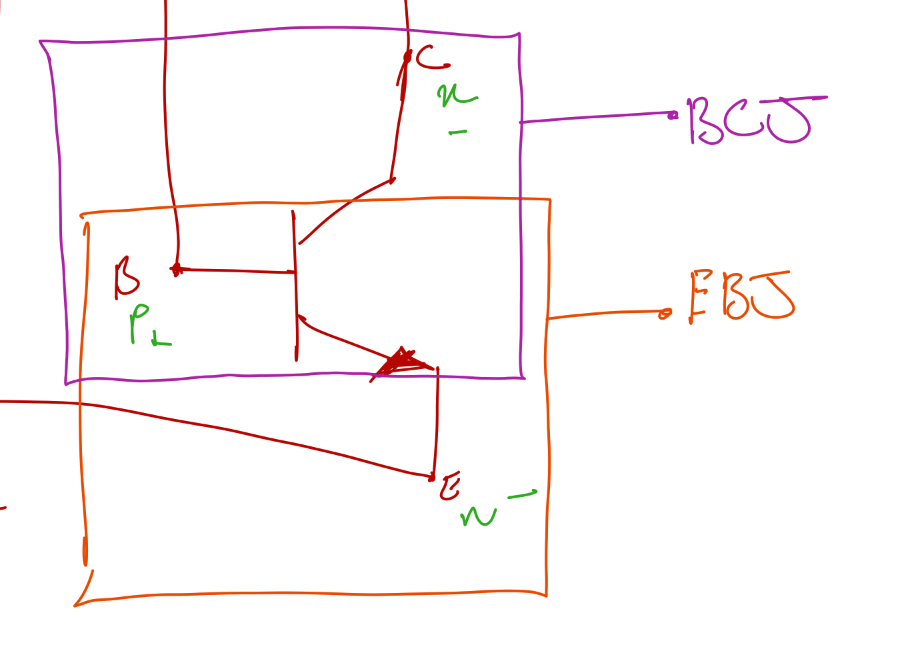 C
n
-
BCJ
B
P
EBJ
E
N -